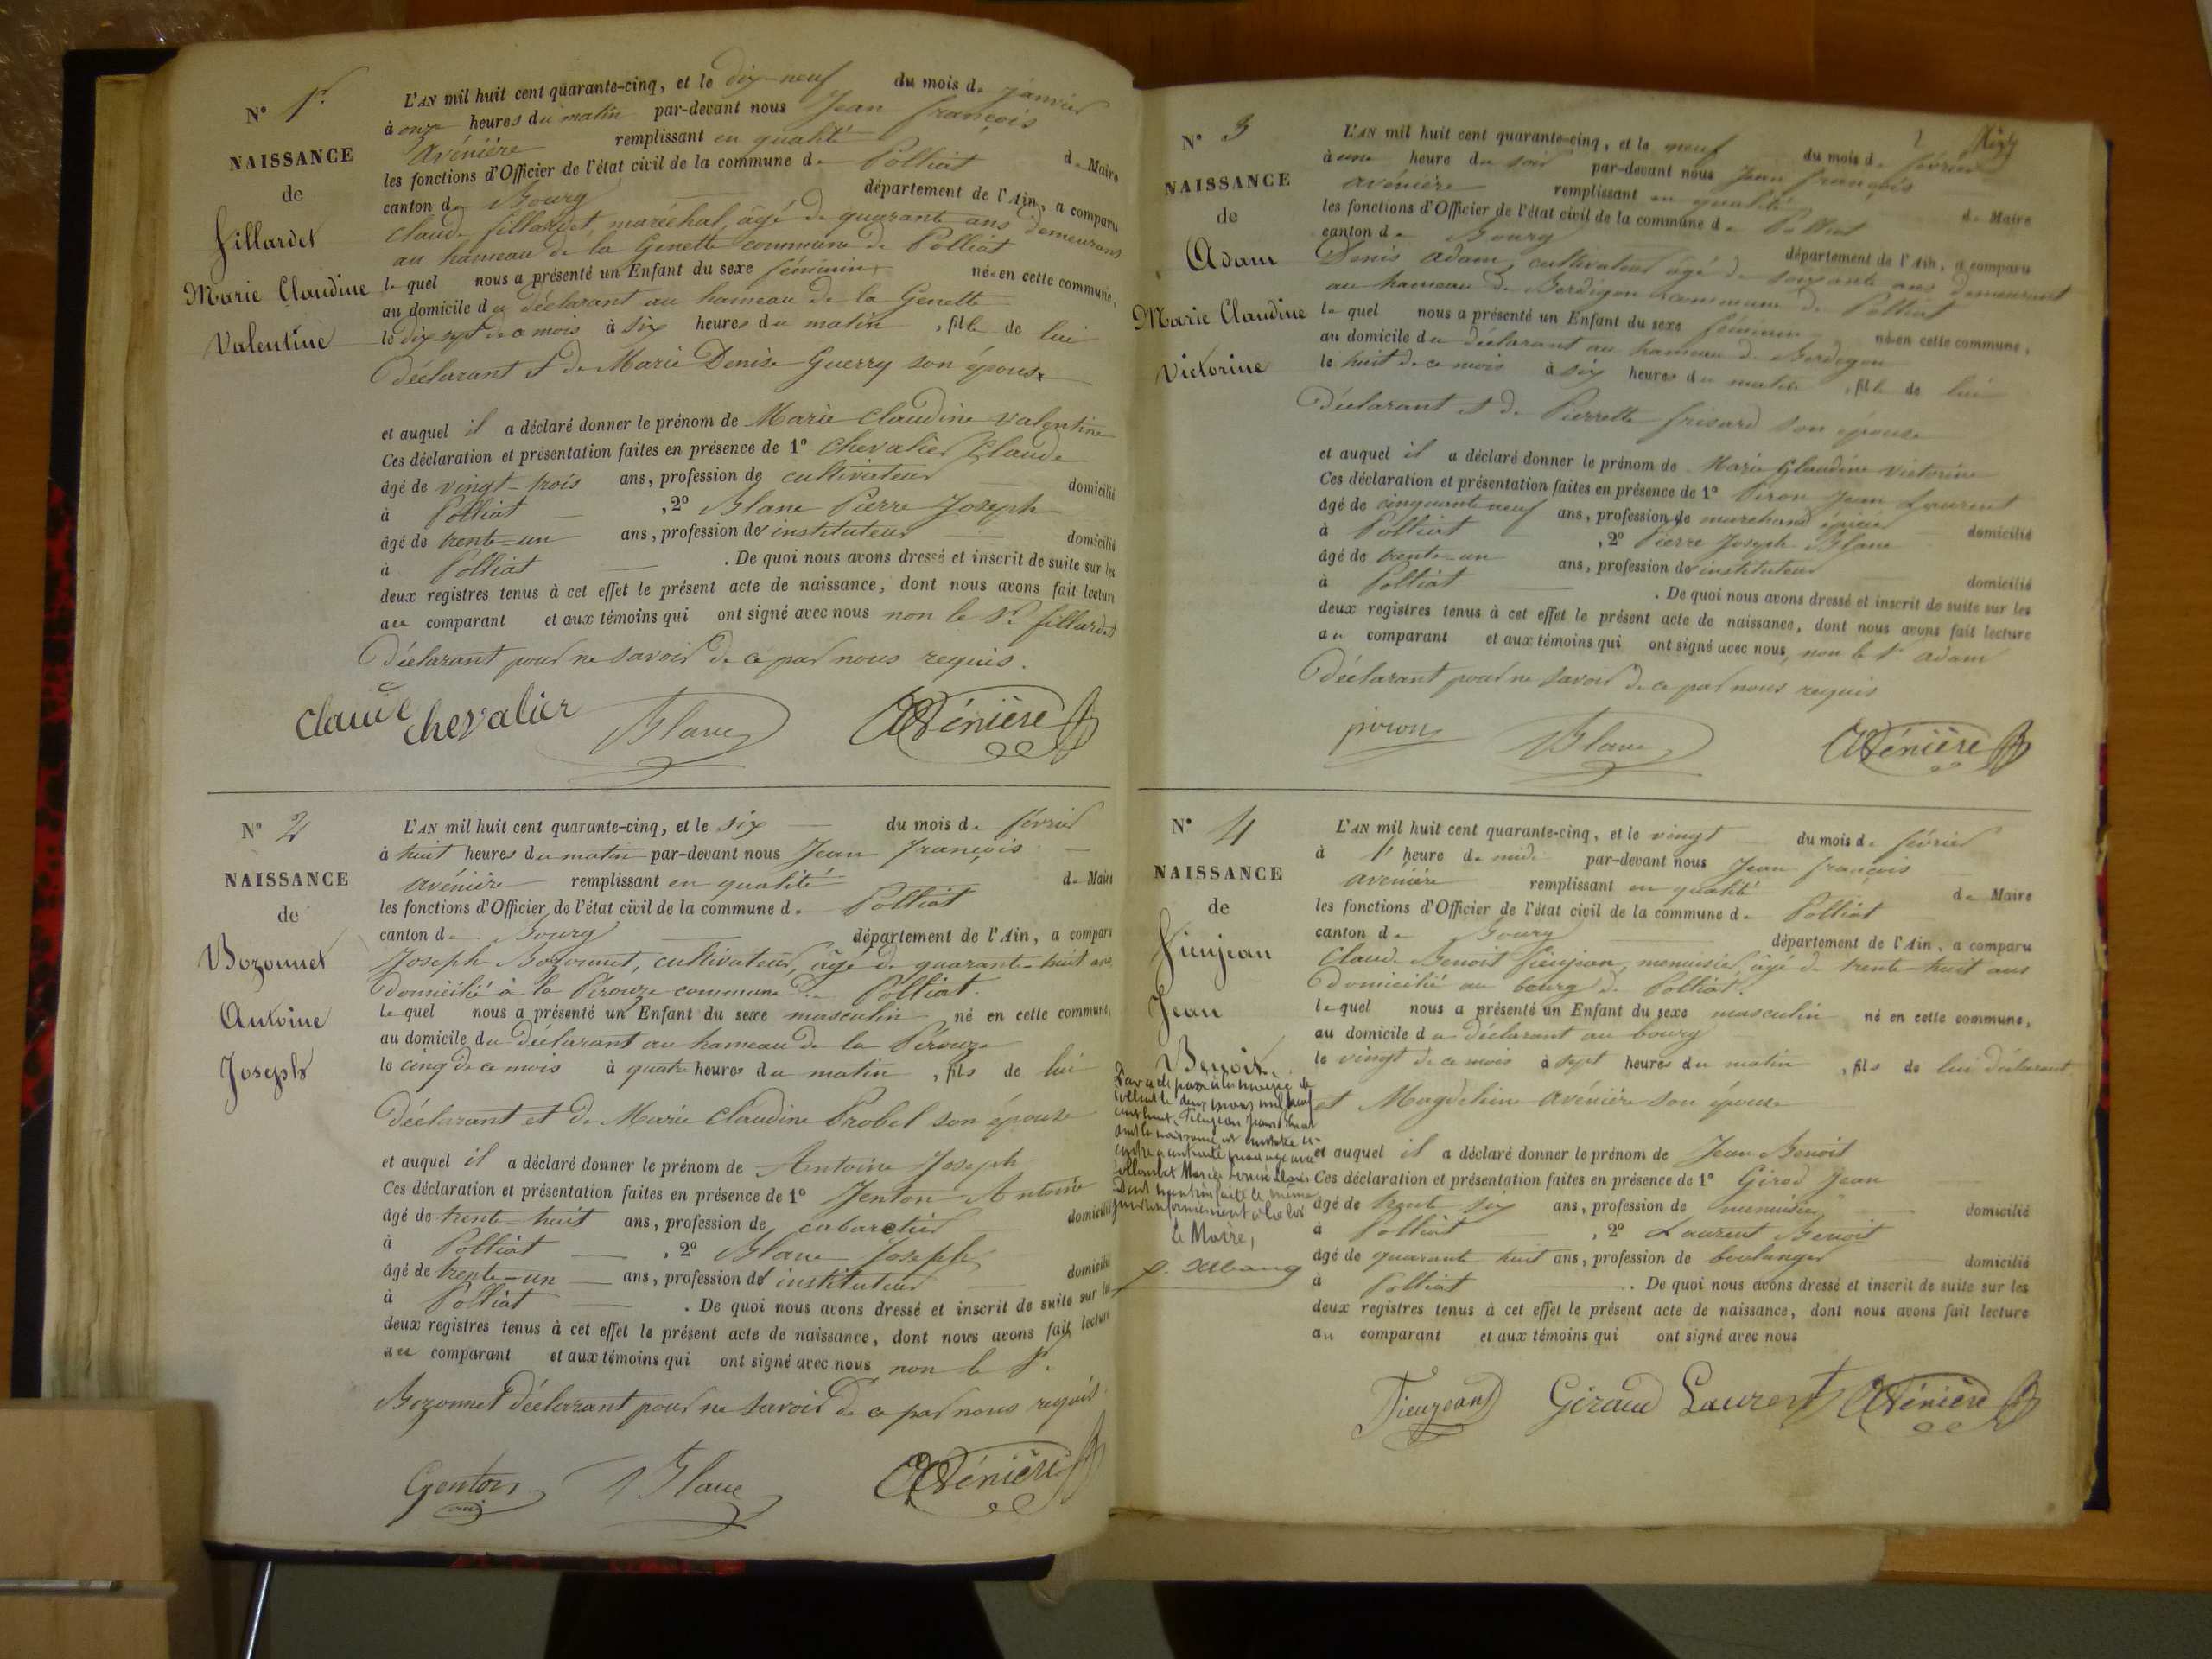 N° 1er
NAISSANCE
de
fillardet
Marie Claudine
Valentine
L'AN mil huit cent quarante-cinq, et le dix-neuf du mois de janvier
à onze heures du matin par-devant nous Jean françois
avénière remplissant en qualité de Maire
les fonctions d'Officier de l'état civil de la commune de Polliat
canton de Bourg département de l'Ain, a comparu
Claude fillardet, maréchal, âgé de quarante ans demeurant
au hameau de la Genette commune de Polliat
lequel nous a présenté un Enfant du sexe féminin née en cette commune,
au domicile du déclarant au hameau de la Genette
le dix-sept de ce mois à six heures du matin, fille de lui
Déclarant et de Marie Denise Guerry son épouse
et auquel il a déclaré donner le prénom de Marie Claudine Valentine
Ces déclaration et présentation faites en présence de 1° Chevalier Claude
âgé de vingt-trois ans, profession de cultivateur domicilié
à Polliat, 2° Blanc Pierre Joseph
âgé de trente-un ans, profession de instituteur domicilié
à Polliat. De quoi nous avons dressé et inscrit de suite sur les
deux registres tenus à cet effet le présent acte de naissance, dont nous avons fait lecture
au comparant et aux témoins qui ont signé avec nous non le Sr fillardet
Déclarant pour ne savoir de ce par nous requis.
Claude chevalier Blanc Avénière
N° 2
NAISSANCE
de
Bozonnet
Antoine
Joseph
L'AN mil huit cent quarante-cinq, et le six du mois de février
à huit heures du matin par-devant nous Jean françois
avénière remplissant en qualité de Maire
les fonctions d'Officier de l'état civil de la commune de Polliat
canton de Bourg département de l'Ain, a comparu
Joseph Bozonnet, cultivateur, âgé de quarante-huit ans
Domicilié à la Pérouze commune de Polliat.
lequel nous a présenté un Enfant du sexe masculin né en cette commune,
au domicile du Déclarant au hameau de la Pérouze
le cinq de ce mois à quatre heures du matin, fils de lui
Déclarant et de Marie Claudine Probel son épouse
et auquel il a déclaré donner le prénom de Antoine Joseph
Ces déclaration et présentation faites en présence de 1° Jenton Antoine
âgé de trente-huit ans, profession de cabaretier domicilié
à Polliat, 2° Blanc Joseph
âgé de trente-un ans, profession de instituteur domicilié
à Polliat. De quoi nous avons dressé et inscrit de suite sur les
deux registres tenus à cet effet le présent acte de naissance, dont nous avons fait lecture
au comparant et aux témoins qui ont signé avec nous non le Sr
Bozonnet déclarant pour ne savoir de ce par nous requis
Genton Blanc Avénière
N° 3
NAISSANCE
de
Adam
Marie Claudine
Victorine
L'AN mil huit cent quarante-cinq, et le neuf du mois de février
à une heure du soir par-devant nous Jean françois
avénière remplissant en qualité de Maire
les fonctions d'Officier de l'état civil de la commune de Polliat
canton de Bourg département de l'Ain, a comparu
Denis Adam, cultivateur âgé de soixante ans demeurant
au hameau de commune de Polliat
lequel nous a présenté un Enfant du sexe féminin née en cette commune,
au domicile du déclarant au hameau de
le huit de ce mois à six heures du matin, fille de lui
Déclarant et de Pierrette frisard son épouse
et auquel il a déclaré donner le prénom de Marie Claudine Victorine
Ces déclaration et présentation faites en présence de 1° Piron Jean Laurent
âgé de cinquante neuf ans, profession de marchand épicier domicilié
à Polliat, 2° Pierre Joseph Blanc
âgé de trente-un ans, profession de instituteur domicilié
à Polliat. De quoi nous avons dressé et inscrit de suite sur les
deux registres tenus à cet effet le présent acte de naissance, dont nous avons fait lecture
au comparant et aux témoins qui ont signé avec nous, non le Sr adam
Déclarant pour ne savoir de ce par nous requis
piron Blanc Avénière
N° 4
NAISSANCE
de
fieujean
Jean
Benoit
L'AN mil huit cent quarante-cinq, et le vingt du mois de février
à 1 heure de midi par-devant nous Jean françois
avénière remplissant en qualité de Maire
les fonctions d'Officier de l'état civil de la commune de Polliat
canton de Bourg département de l'Ain, a comparu
Claude Benoit fieujean, menuisier, âgé de trente-huit ans
Domicilié au bourg de Polliat.
lequel nous a présenté un Enfant du sexe masculin né en cette commune,
au domicile du déclarant au bourg
le vingt de ce mois à sept heures du matin, fils de lui déclarant
et Magdeleine avénière son épouse
et auquel il a déclaré donner le prénom de Jean Benoit
Ces déclaration et présentation faites en présence de 1° Girod Jean
âgé de trente six ans, profession de menuisier domicilié
à Polliat, 2° Laurent Benoit
âgé de quarante huit ans, profession de boulanger domicilié
à Polliat. De quoi nous avons dressé et inscrit de suite sur les
deux registres tenus à cet effet le présent acte de naissance, dont nous avons fait lecture
au comparant et aux témoins qui ont signé avec nous
Fieujean Giraud Laurent Avénière
Le Maire,